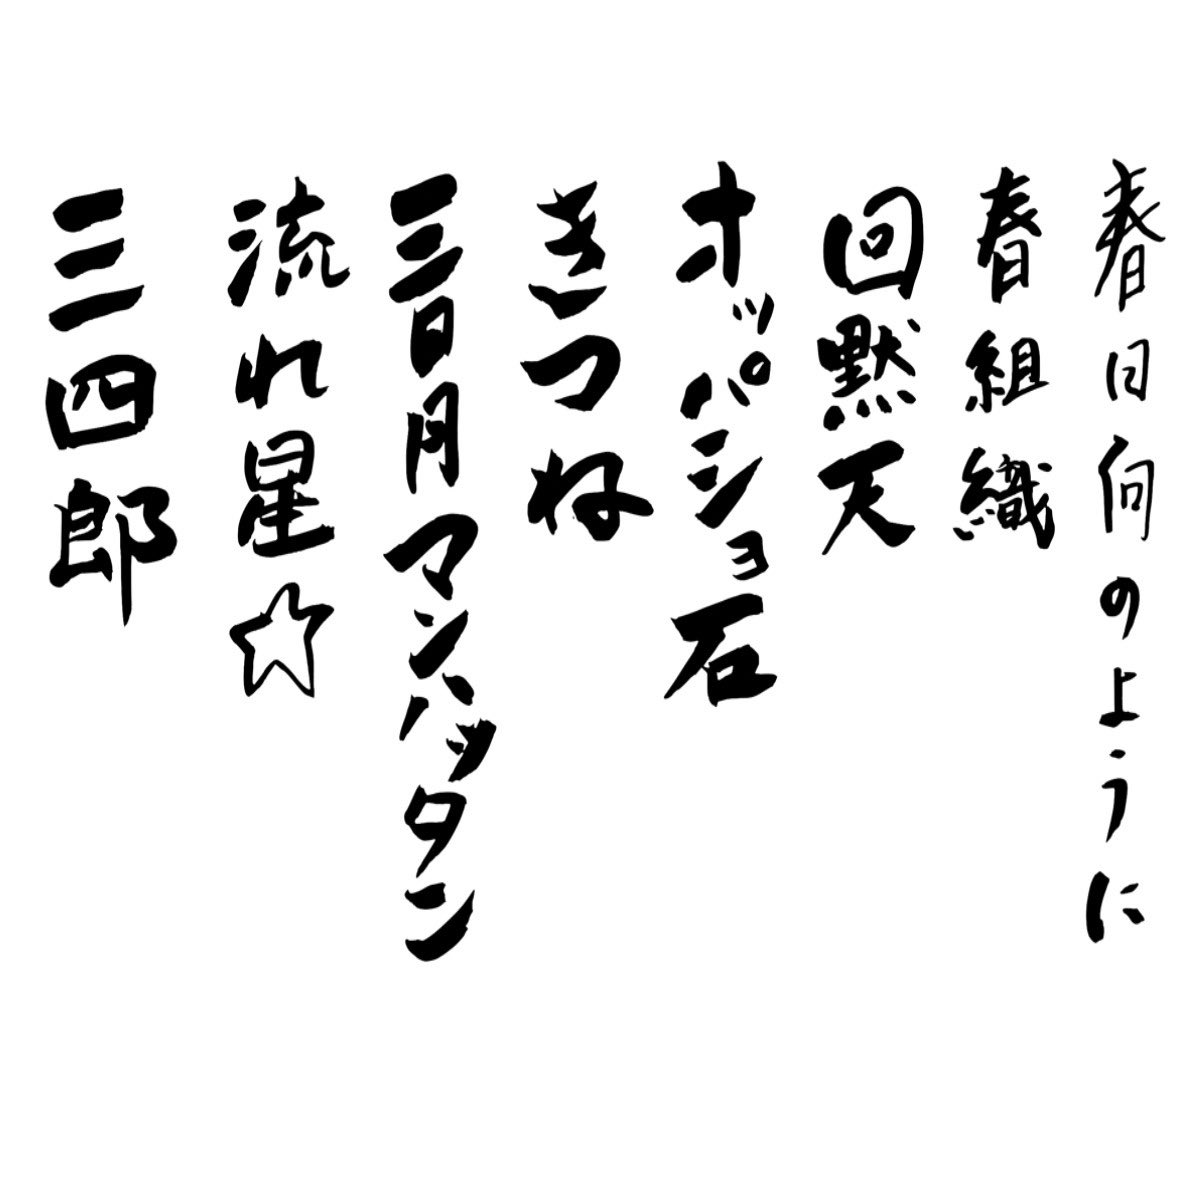 春日向のように
春組織
回黙天
オッパショ石
きつね
三日月マンハッタン
流れ星☆
三四郎